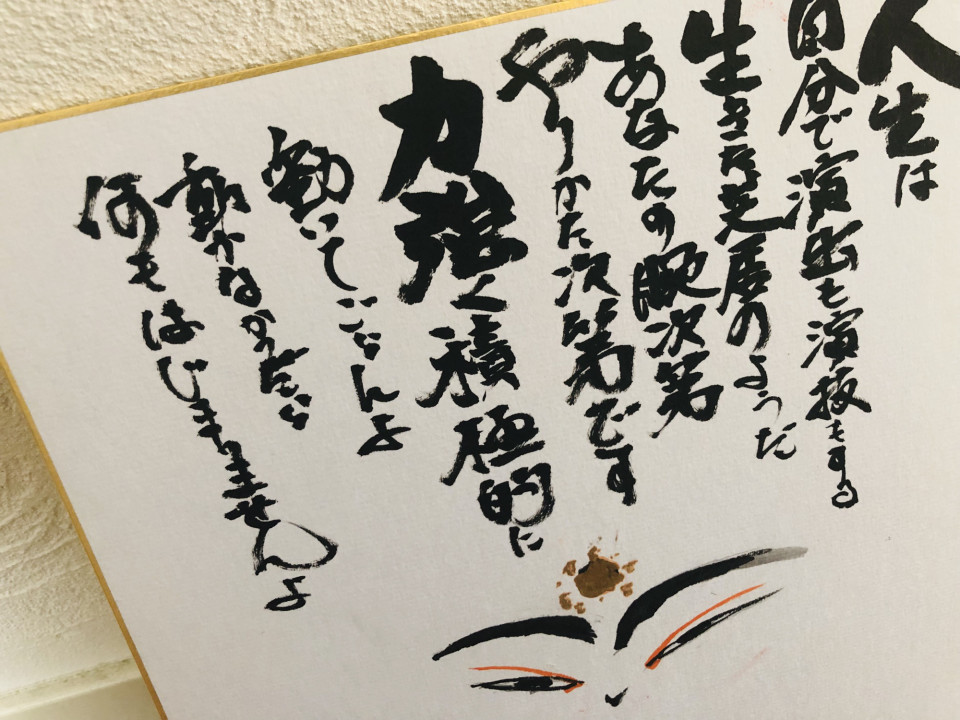 人生は
自分で演出も演技もする
生きた芝居のようだ
あなたの腕次第
やりかた次第です
力強く積極的に
動いてごらんよ
動かなかったら
何もはじまりませんよ